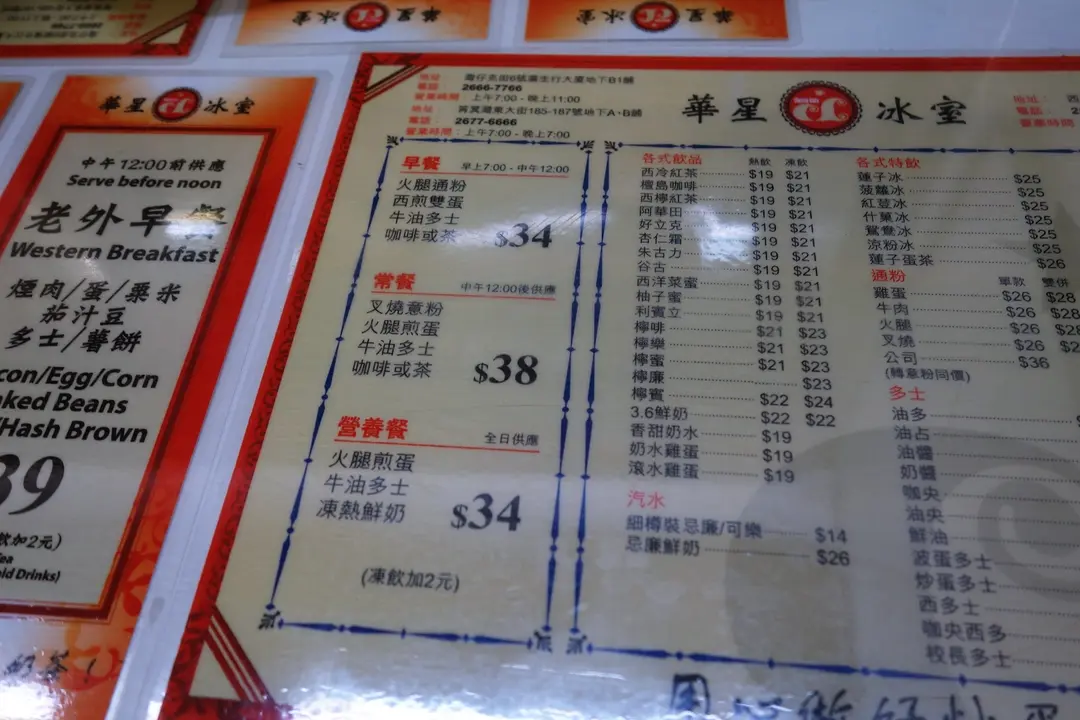 華星 冰室
華星 冰室
華星 冰室
中午12:00前供應
Serve before noon
老外早餐
Western Breakfast
煙肉/蛋/粟米
茄汁豆
多士/薯餅
con/Egg/Corn
ked Beans
/Hash Brown
39
飲加2元)
ea
ld Drinks)
奶茶!
地址: 灣仔克街6號廣生行大廈地下B1舖
電話: 2666-7766
營業時間: 上午7:00 - 晚上11:00
地址: 筲箕灣東大街185-187號地下A-B舖
電話: 2677-6666
營業時間: 上午7:00 - 晚上7:00
華星 冰室
地址: 西
電話: 2
營業時間
早餐 早上7:00 - 中午12:00
火腿通粉
西煎雙蛋
牛油多士
咖啡或茶 $34
常餐 中午12:00後供應
叉燒意粉
火腿煎蛋
牛油多士
咖啡或茶 $38
營養餐 全日供應
火腿煎蛋
牛油多士
凍熱鮮奶 $34
(凍飲加2元)
各式飲品 熱飲 凍飲
西冷紅茶 $19 $21
檀島咖啡 $19 $21
西檸紅茶 $19 $21
阿華田 $19 $21
好立克 $19 $21
杏仁霜 $19 $21
朱古力 $19 $21
谷古 $19 $21
西洋菜蜜 $19 $21
柚子蜜 $19 $21
利賓立 $19 $21
檸啡 $21 $23
檸樂 $21 $23
檸蜜 $21 $23
檸廉 $23
檸賓 $22 $24
3.6鮮奶 $22 $22
香甜奶水 $19
奶水雞蛋 $19
滾水雞蛋 $19
汽水
細樽裝忌廉/可樂 $14
忌廉鮮奶 $26
各式特飲
蓮子冰 $25
菠蘿冰 $25
紅荳冰 $25
什菓冰 $25
鴛鴦冰 $25
涼粉冰 $25
蓮子蛋茶 $26
通粉 單款 雙併
雞蛋 $26 $28
牛肉 $26 $28
火腿 $26 $28
叉燒 $26 $2
公司 $36
(轉意粉同價)
多士
油多
油占
油醬
奶醬
咖央
油央
鮮油
菠蛋多士
炒蛋多士
西多士
咖央西多
校長多士